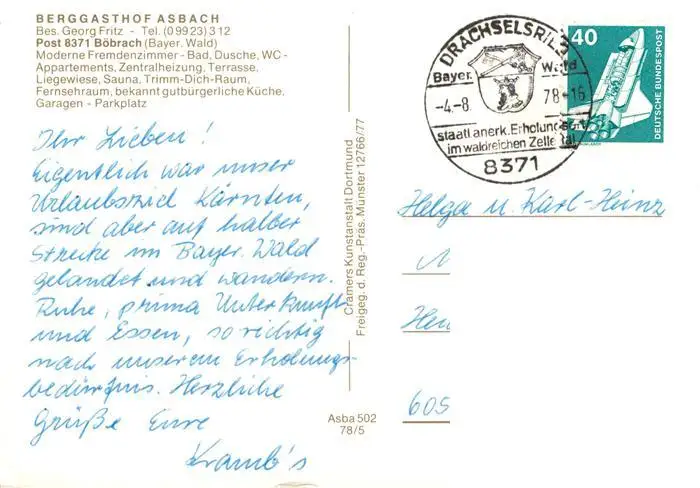 BERGGASTHOF ASBACH
Bes. Georg Fritz - Tel. (09923) 312
Post 8371 Böbrach (Bayer. Wald)
Moderne Fremdenzimmer - Bad, Dusche, WC -
Appartements, Zentralheizung, Terrasse,
Liegewiese, Sauna, Trimm-Dich-Raum,
Fernsehraum, bekannt gutbürgerliche Küche,
Garagen - Parkplatz
Ihr Lieben!
Eigentlich war unser
Urlaubsziel Kärnten,
sind aber auf halber
Strecke im Bayer. Wald
gelandet und wandern.
Ruhe, prima Unterkunft
und Essen, so richtig
nach unserem Erholungs-
bedürfnis. Herzliche
Grüße Eure
Kramb's
Cramers Kunstanstalt Dortmund
Freigeg. d. Reg.-Präs. Münster 12766/77
Asba 502
78/5
DRACHSELSRIED
Bayer. Wald
-4.-8. 78-16
staatl. anerk. Erholungsort
im waldreichen Zellertal
8371
40
DEUTSCHE BUNDESPOST
Helga u. Karl-Heinz
605